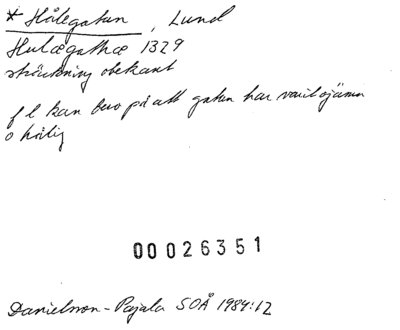 * Hålegatan, Lund
Hulægathæ 1329
sträckning obekant
f l kan bero på att gatan har varit ojämn
o hålig
00026351
Danielson-Pajala SOÅ 1984:12